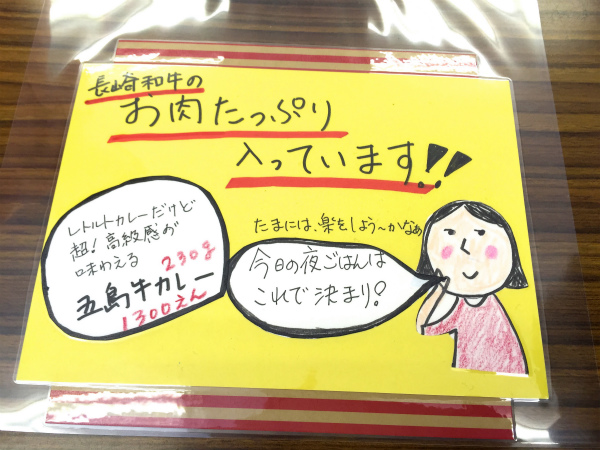 長崎和牛の
お肉たっぷり
入っています!!
レトルトカレーだけど
超!高級感が
味わえる
230g
五島牛カレー
1300えん
たまには、楽をしよう〜かなぁ
今日の夜ごはんは
これで決まり!